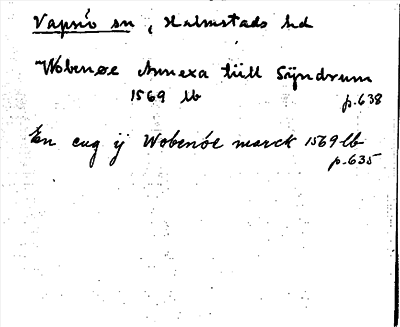 Vapnö sn, Halmstads hd
Wobenøe Annexa till Sÿndrum
1569 lb p.638
En eng ij Wobenöe marck 1569 lb
p.635